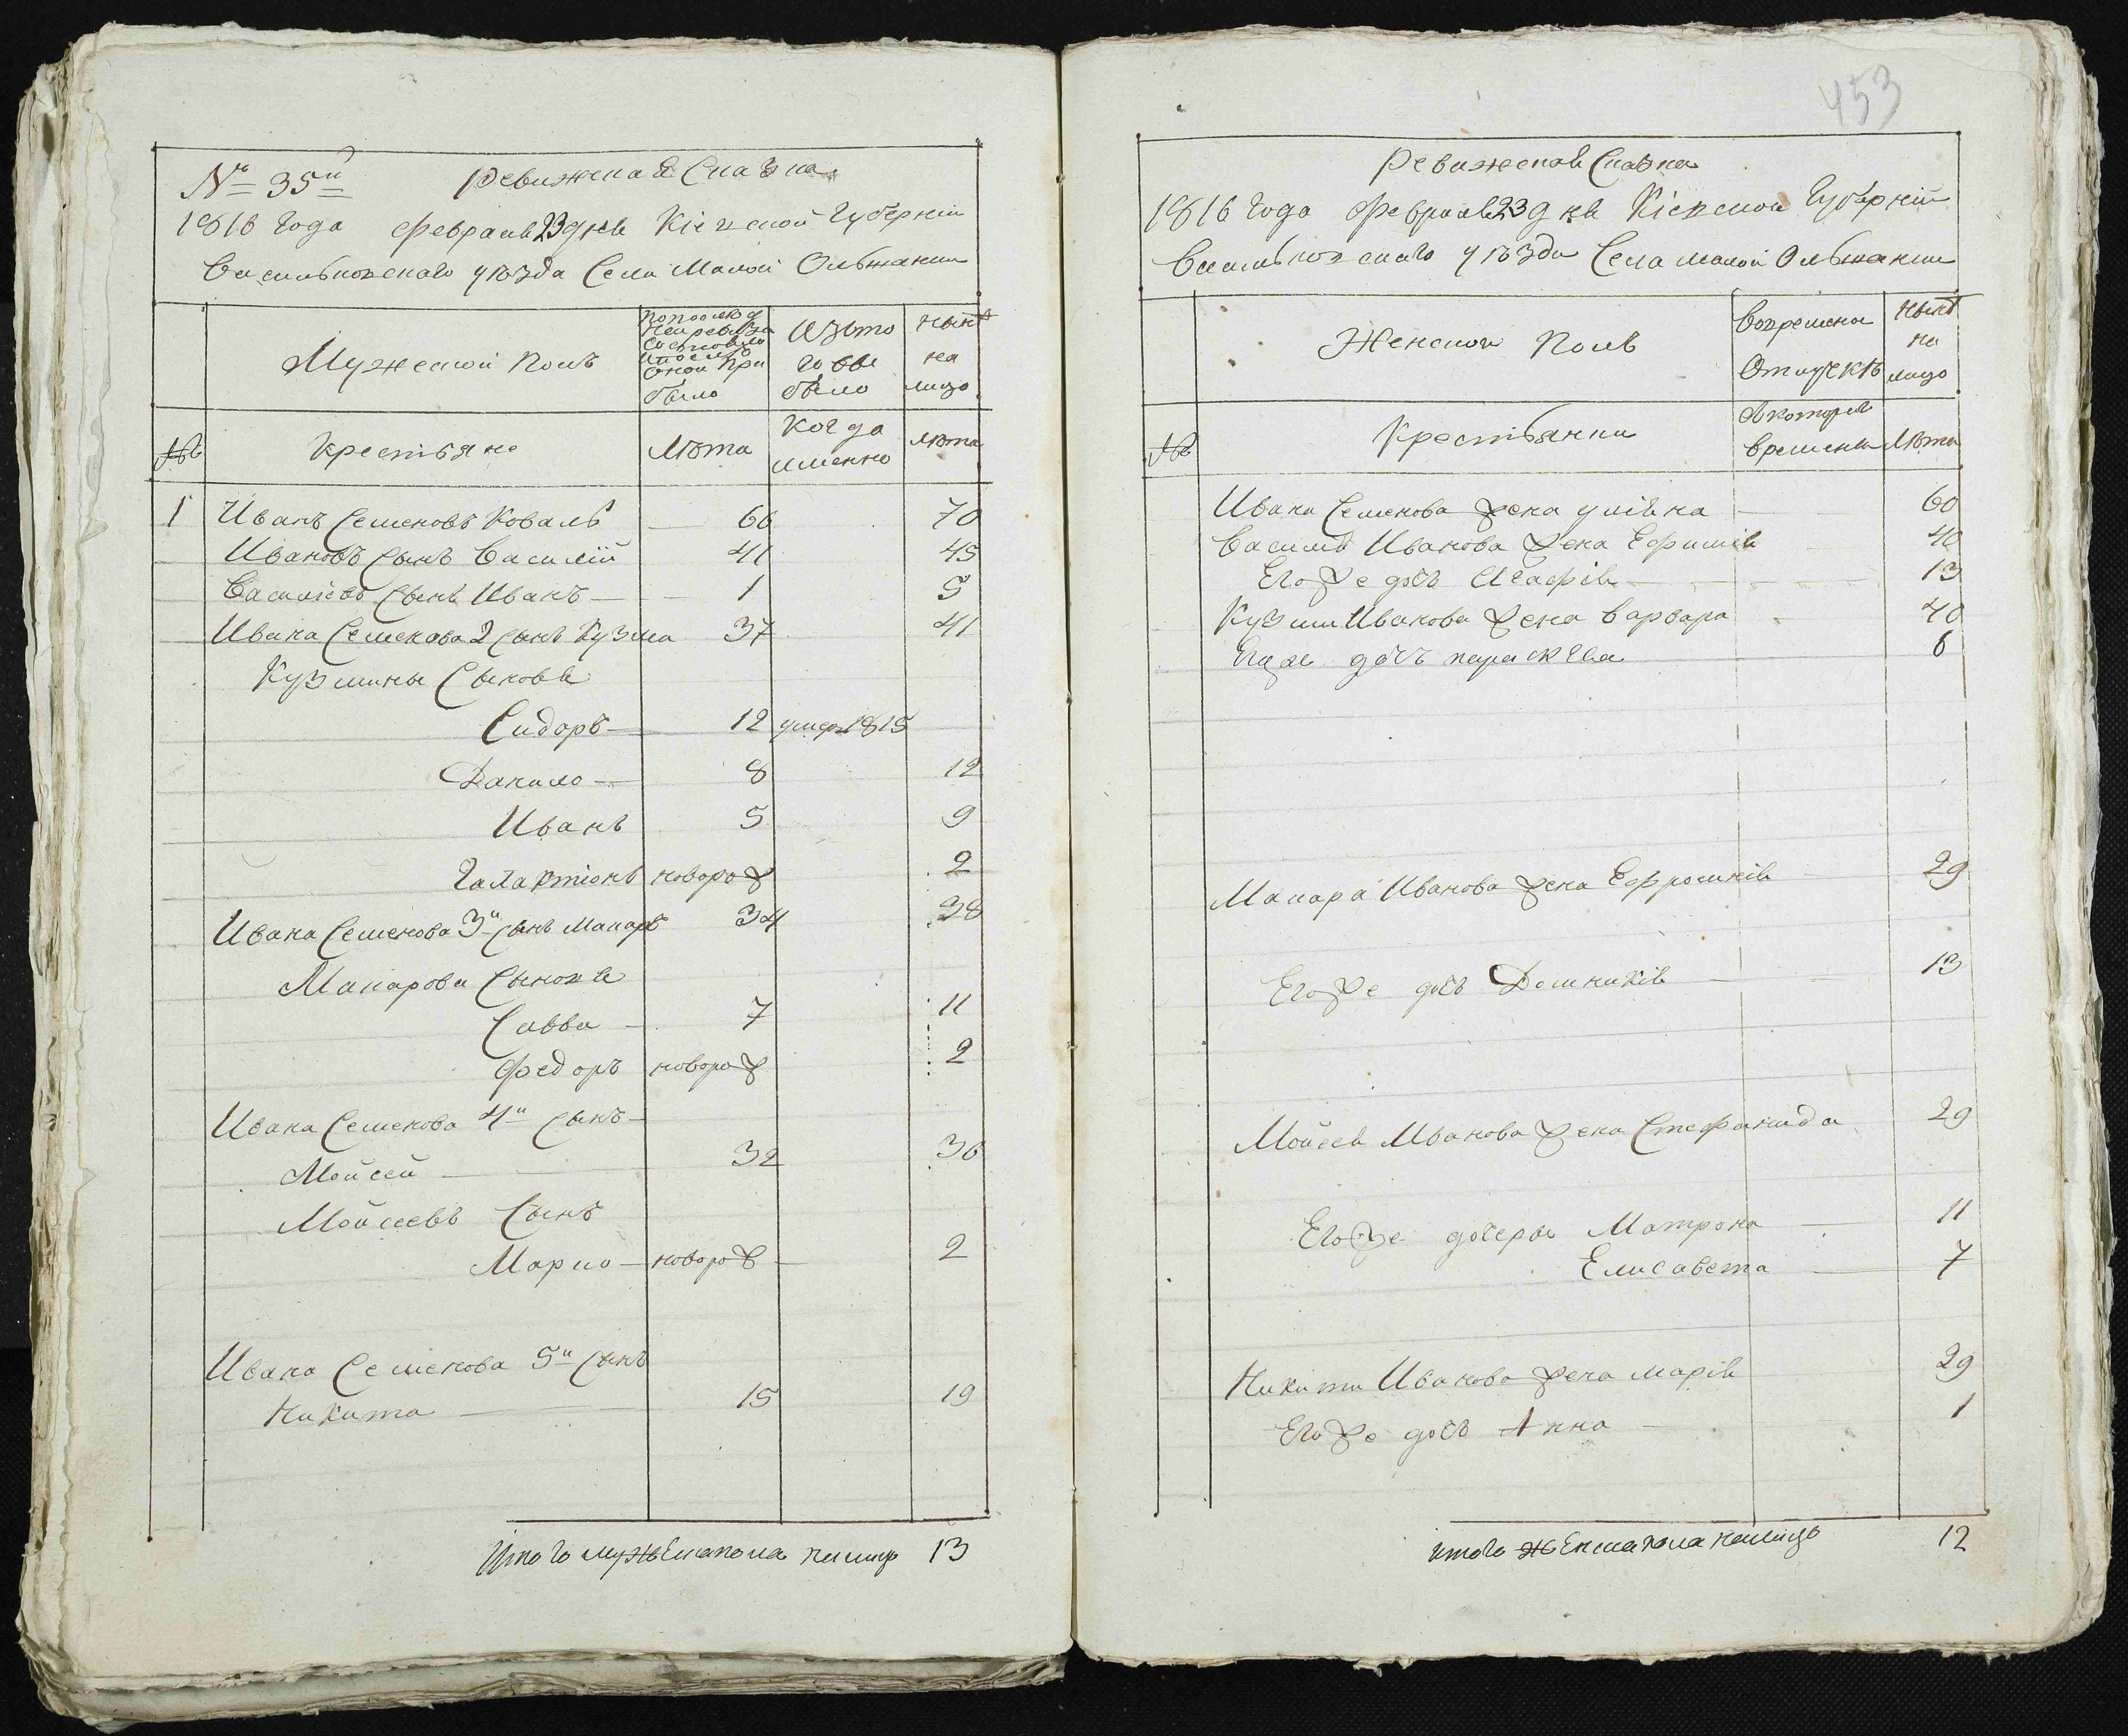 № 35й Ревижская Сказка
1816 года февраля 23 дня Кіевской Губерніи
Васильковского уѣзда Села Малой Ольжанки
Мужеской полъ
По последней ревизіи состояло и после оной прибыло
Изъ того выбыло
Нынѣ на лицо
№
Крестьяне
Лѣта
Когда именно
Лѣта
1 Иванъ Семеновъ Коваль 66 70
Ивановъ сынъ Василій 41 45
Василіевъ сынъ Иванъ 1 5
Ивана Семенова 2 сынъ Кузма 37 41
Кузмины сыновья
Сидоръ 12 умер 1815
Данило 8 12
Иванъ 5 9
Галактіонъ новорож 2
Ивана Семенова 3й сынъ Макаръ 34 38
Макарова сыновя
Савва 7 11
Федоръ новорож 2
Ивана Семенова 4й сынъ
Мойсей 32 36
Мойсеевъ сынъ
Марко новорож 2
Ивана Семенова 5й сынъ
Никита 15 19
Итого мужеска пола налицо 13
453
Ревижская Сказка
1816 года февраля 23 дня Кіевской Губерніи
Васильковского уѣзда Села малой Ольжанки
Женской полъ
Вовременной Отлучкѣ
Нынѣ на лицо
№
Крестьянки
Скоторого времени
Лѣта
Ивана Семенова жена уліяна 60
Василія Иванова жена Ефимія 40
Его же дочь Агафія 13
Кузми Иванова жена варвара 40
Его же дочь параскева 6
Макара Иванова жена Ефросинія 29
Его же дочь Домникія 13
Мойсея Иванова жена Стефанида 29
Его же дочеры Матрона 11
Елисавета 7
Никити Иванова жена марія 29
Его же дочь Анна 1
Итого женска пола налицо 12